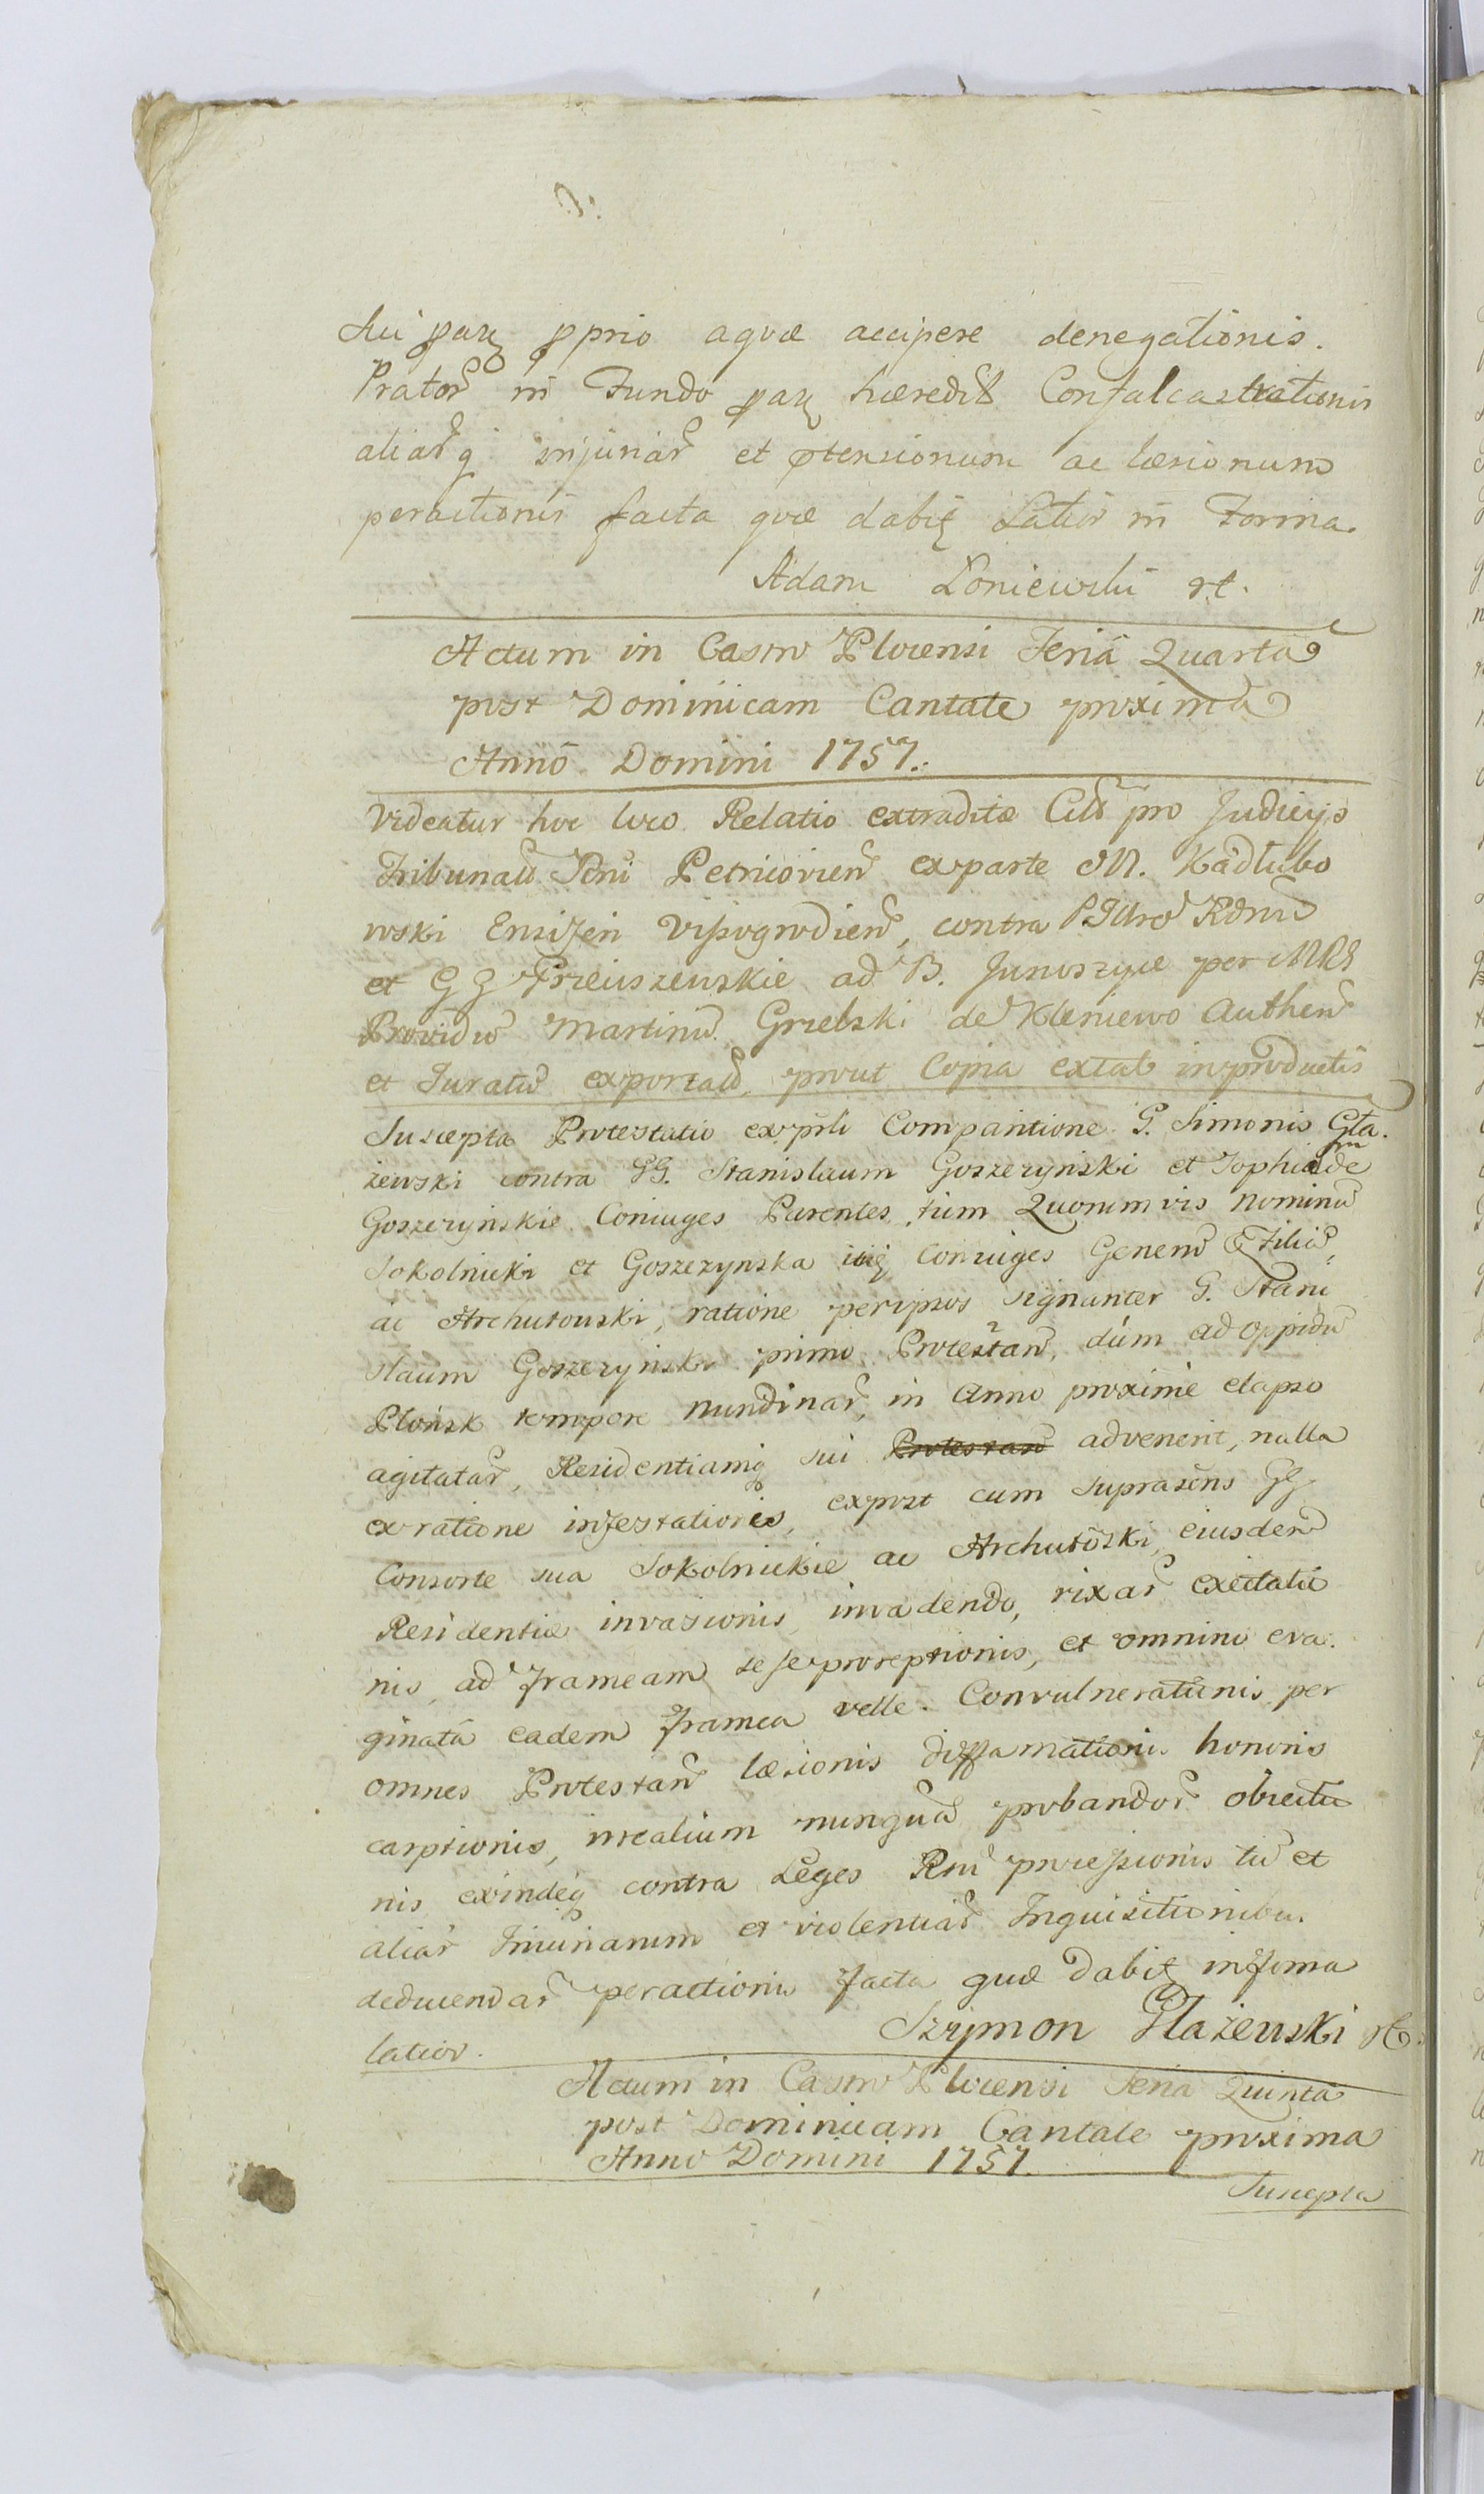 sui parẽ pprio aquæ accipere denegationis.
Prator̃ in Fundo parẽ hæredit̃ Confalcastrationis
aliar̃q injuriar̃ et ptensionum ac læsionum
peractionis facta quæ dabit̃ Latior in Forma.
Adam Łoniewski
Actum in Castro Plocensi Feriâ Quarta
post Dominicam Cantate proxima
Anno Domini 1757.
Videatur hoc loco Relatio extraditæ Citt̃ pro Judicijs
Tribunalt̃ Rñi Petricovien̄ ex parte M. Kadłubo
wski Ensiferi Vissogrodien̄, contra
et GG ad B. Junoszyce per
Providũ Martinũ Grzelski de Kleniewo Authen̄
et Juratũ exportat̃, prout Copia extat in productis
Suscepta Protestatio ex pñli Comparitione G. Simonis Gła.
żewski contra GG. Stanislaum Goszczyński et Sophiam de
Goszczyńskie Coniuges Parentes, tum Quorumvis Nominũ
Sokolnicki et Goszczynska itiẽ Coniuges Generũ & Filiã,
ac Archutowski, ratione per ipsos signanter G. Stani
slaum Goszczyński primo Protestan̄, dùm ad oppidũ
Płońsk tempore nundinar̃, in Anno proximè elapso
agitatar̃, Residentiamq̃ sui Protestan̄ advenerit, nulla
ex ratione infestationis, expost cum suprascñs GG
Consorte sua Sokolnickie ac Archutõski, eiusdem
Residentiæ invasionis, invadendo, rixar̃ excitatio
nis, ad frameam sese proreptionis, et omnino eva.
ginatâ eadem framea velle. Convulnerationis per
omnes Protestan̄ læsionis diffamationis honoris
carptionis, irrealium nunquã probandor̃ obiectio
nis exindeq̃ contra Leges Rñi processionis tũ et
aliar̃ Iniuriarum et violentiar̃ Inquisitionibus
deducendar̃ peractionis facta quæ dabit̃ in forma
latior.
Szymon Głażewski
Actum in Castro Plocensi Feria Quinta
post Dominicam Cantate proxima
Anno Domini 1757.
Suscepta